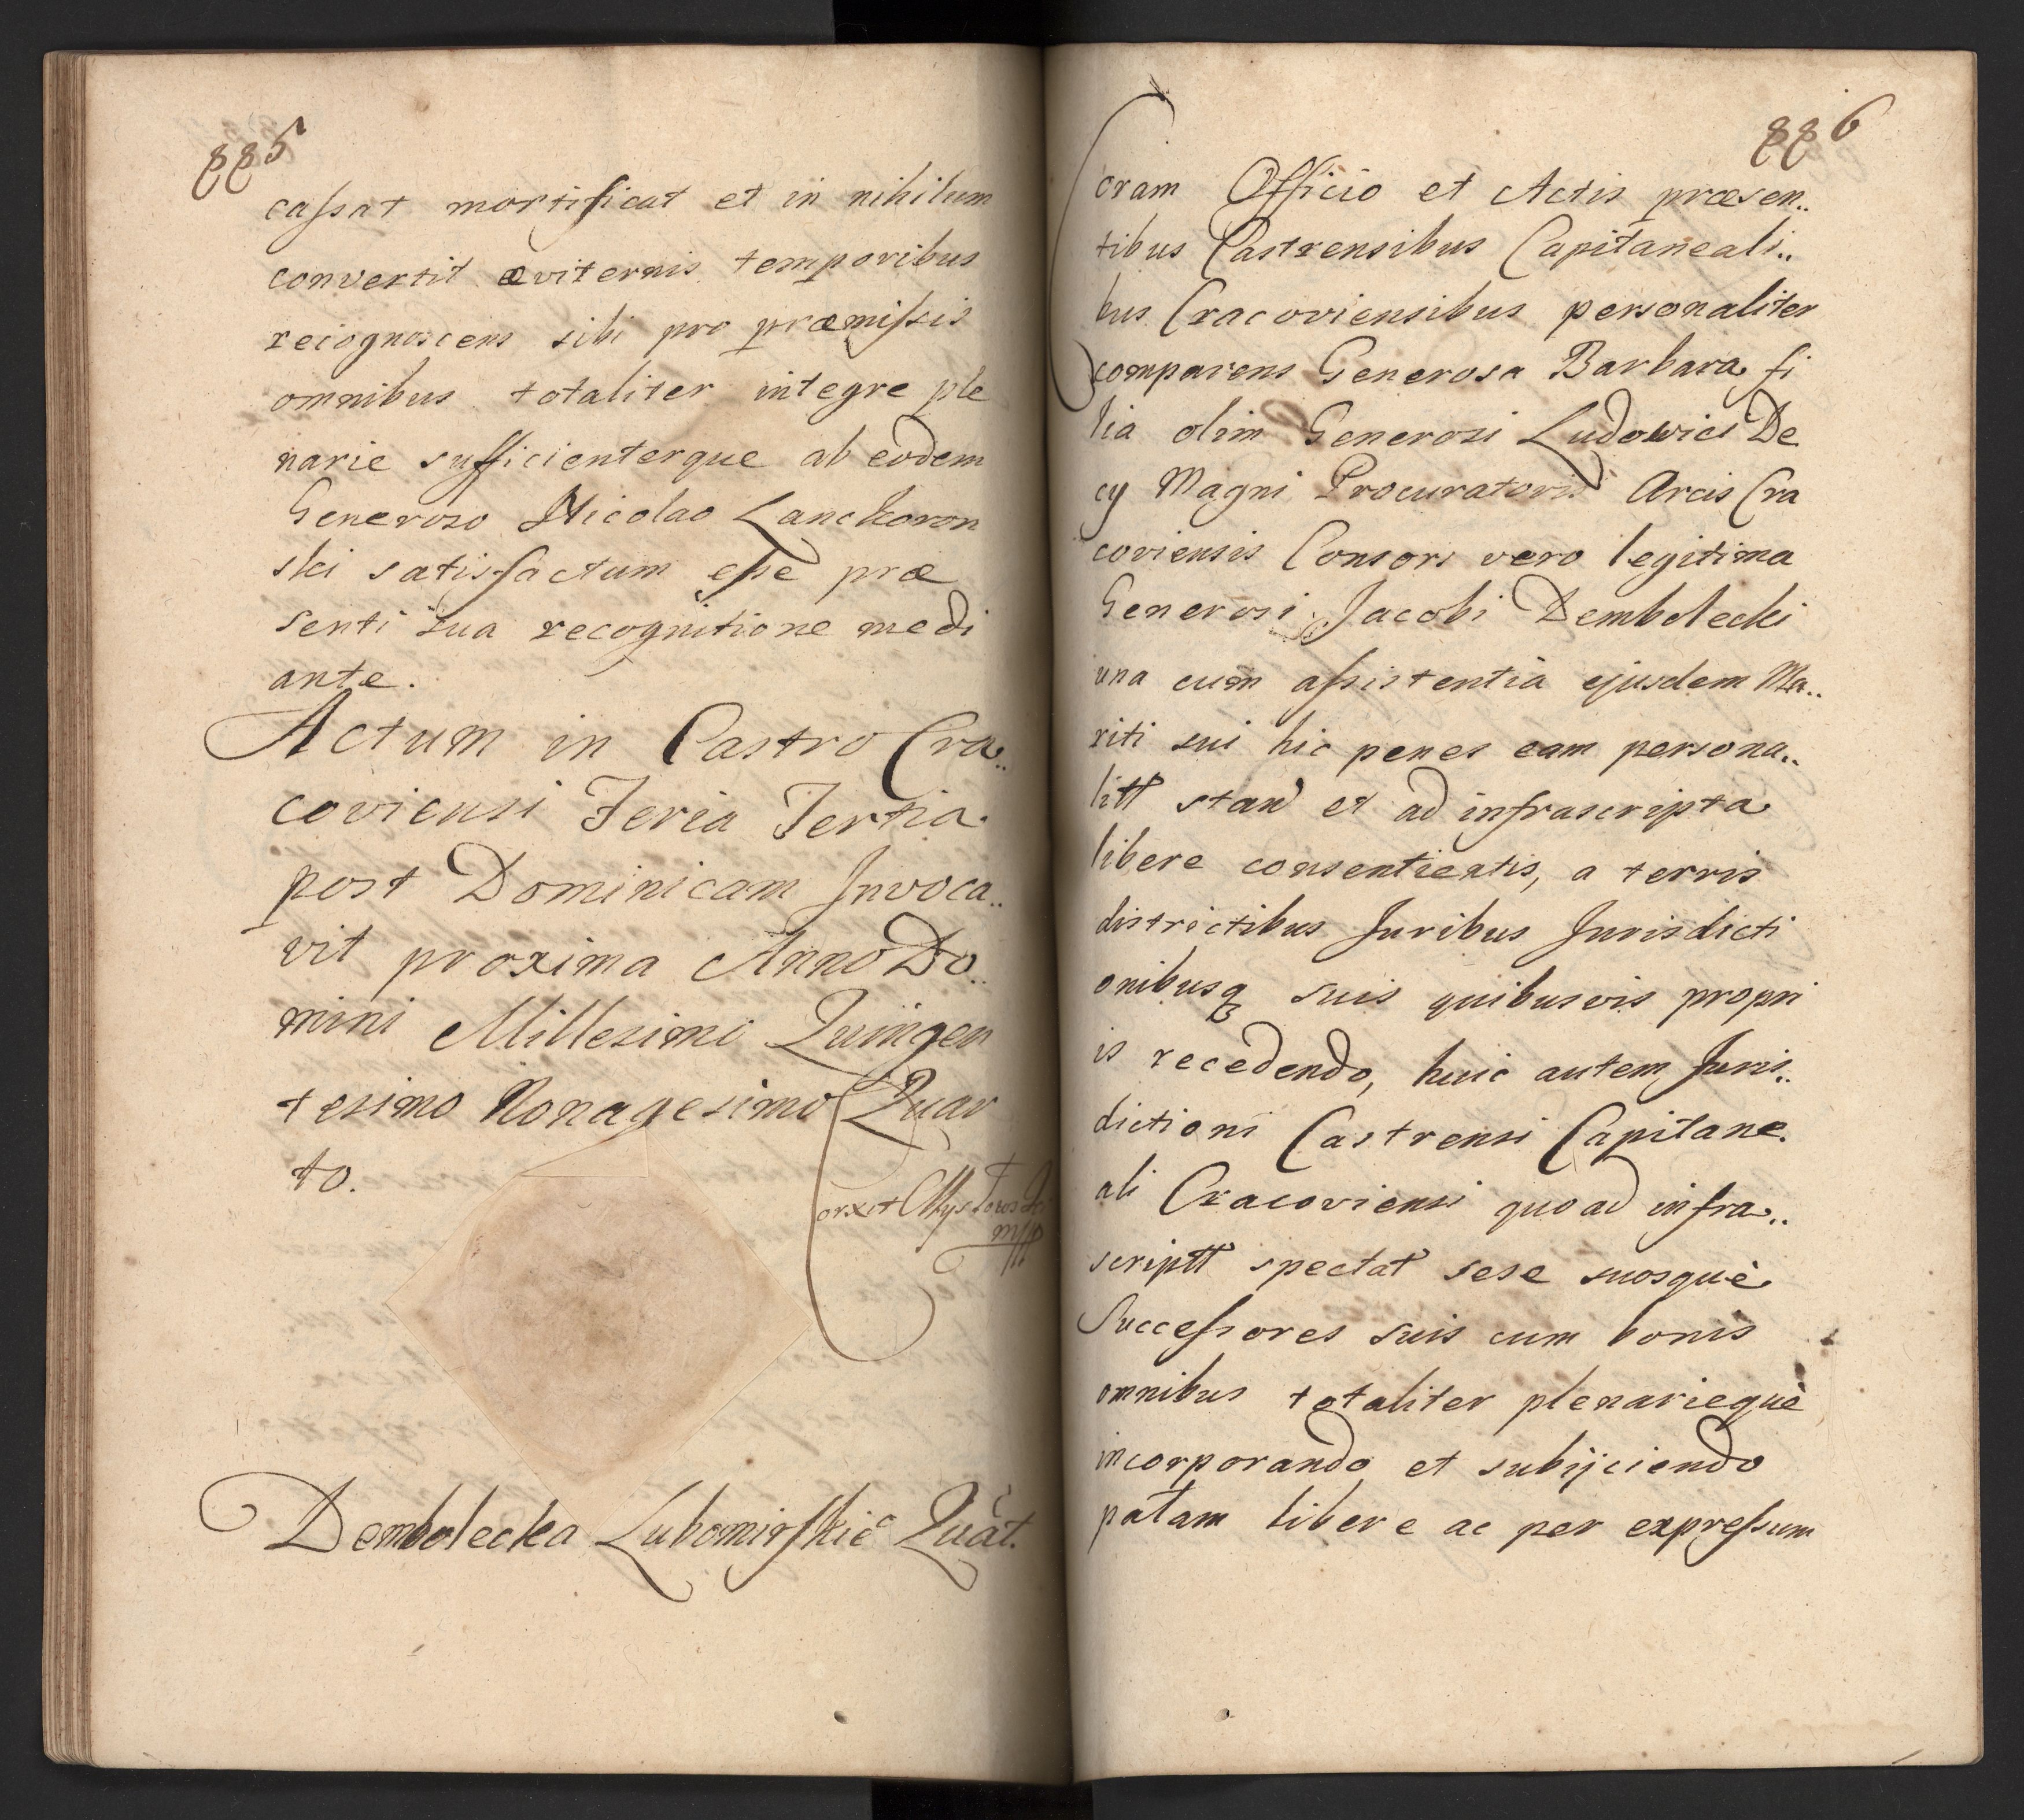 885
cassat mortificat et in nihilum
convertit æviternis temporibus
recognoscens sibi pro præmissis
omnibus totaliter integre ple
narie sufficienterque ab eodem
Generoso Nicolao Lanckoron
ski satisfactum esse præ
senti sua recognitione medi
ante.
Actum in Castro Cra..
coviensi Feria Tertia
post Dominicam Invoca..
vit proxima Anno Do..
mini Millesimo Quingen
tesimo Nonagesimo Quar
to.
Dembolecka Lubomirskie Quāt.
886
Coram Officio et Actis præsen..
tibus Castrensibus Capitaneali..
bus Cracoviensibus personaliter
comparens Generosa Barbara fi
lia olim Generosi Ludowici De
cy Magni Procuratoris Arcis Cra
coviensis Consors vero legitima
Generosi Jacobi Dembolecki
una cum assistentia ejusdem Ma..
riti sui hic penes eam persona..
litt stan et ad infrascripta
libere consentientis, a terris
districtibus Juribus Jurisdicti
onibusq suis quibusvis propri
is recedendo, huic autem Juris..
dictioni Castrensi Capitane.
ali Cracoviensi quoad infra..
scriptt spectat sese suosquè
Successores suis cum bonis
omnibus totaliter plenariequè
incorporando et subijciendo
palam libere ac per expressum